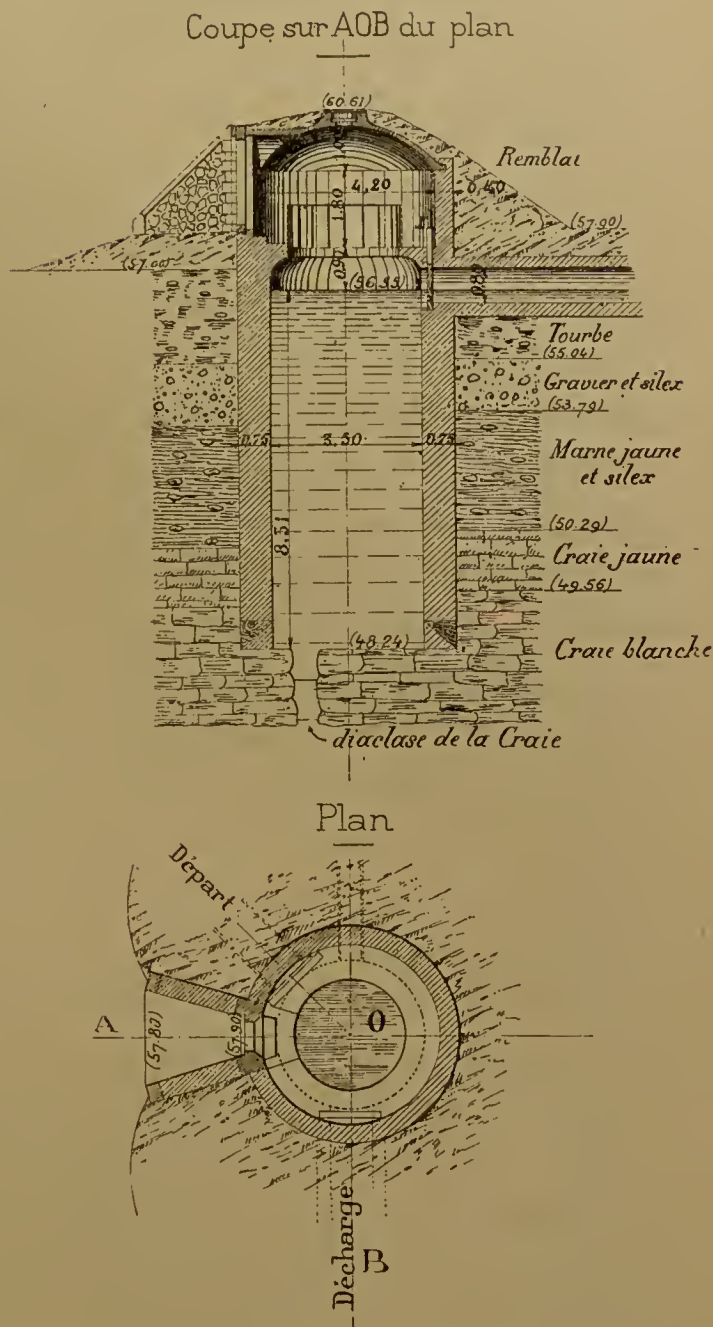 Coupe sur AOB du plan
(60.61)
Remblai
4,20
0,40
1.80
(57.90)
(57.00)
0.90
(56.55)
0.80
Tourbe
(55.04)
Gravier et silex
(53.79)
0.75
3,50
0.75
Marne jaune
et silex
8,31
(50.29)
Craie jaune
(49.56)
(48.24)
Craie blanche
diaclase de la Craie
Plan
Départ
A
(57.80)
(57.90)
O
Décharge
B